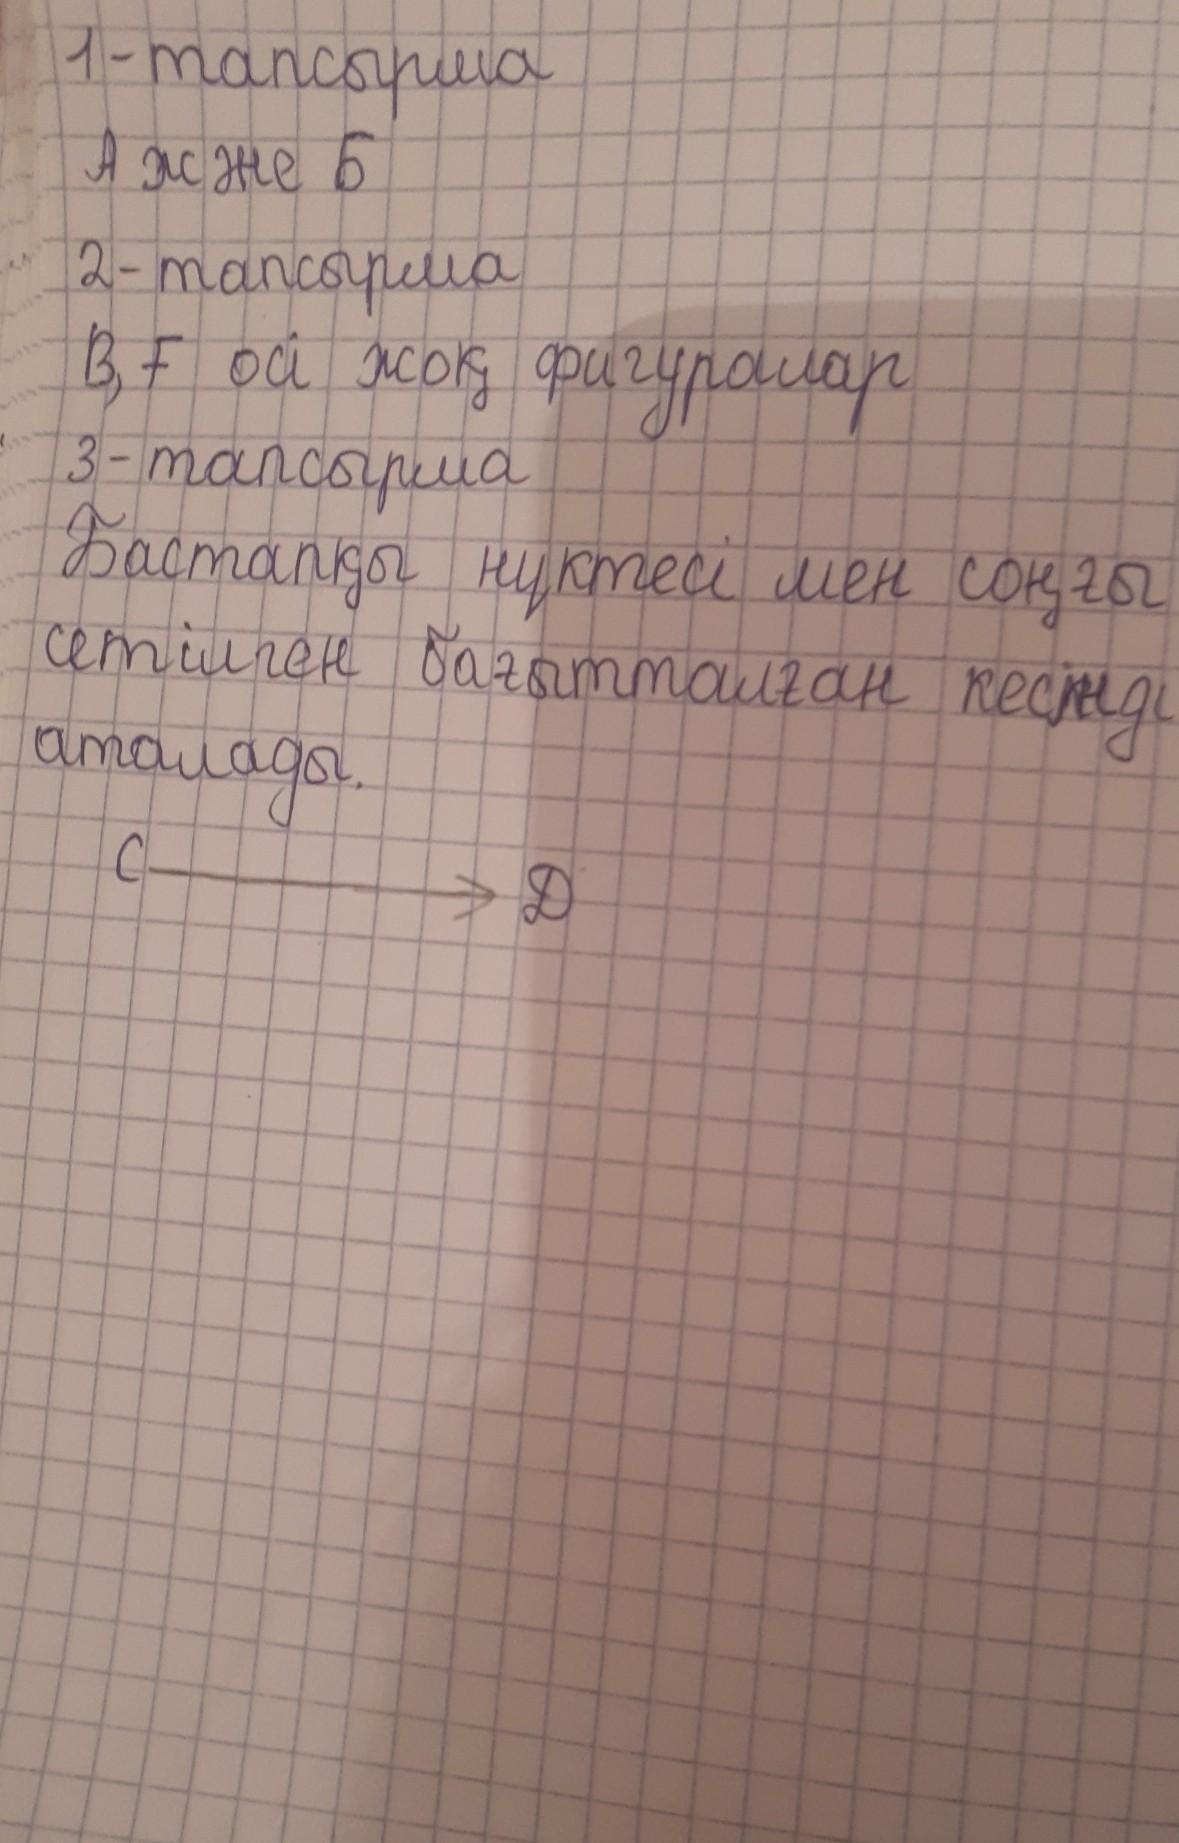 1-тапсырма
А жже Б
2-тапсырма
В, F осі жоқ фигуралар
3-тапсырма
Бастапқы нүктесі мен соңғы
сетілген бағытталған кесінді
аталады.
С → Д